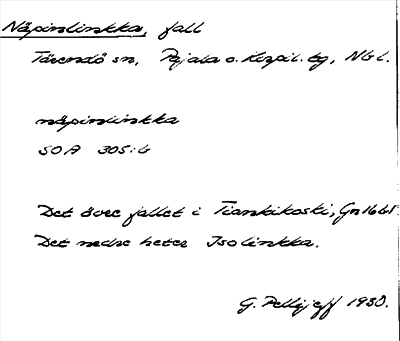 Näpinlinkka, fall
Tärendö sn, Pajala o. Korpil. tg, Nbl.
näpinlinkka
SOA 305:6
Det övre fallet i Tiankikoski, Gn1661
Det nedre heter Isolinkka.
G. Pellijeff 1980.